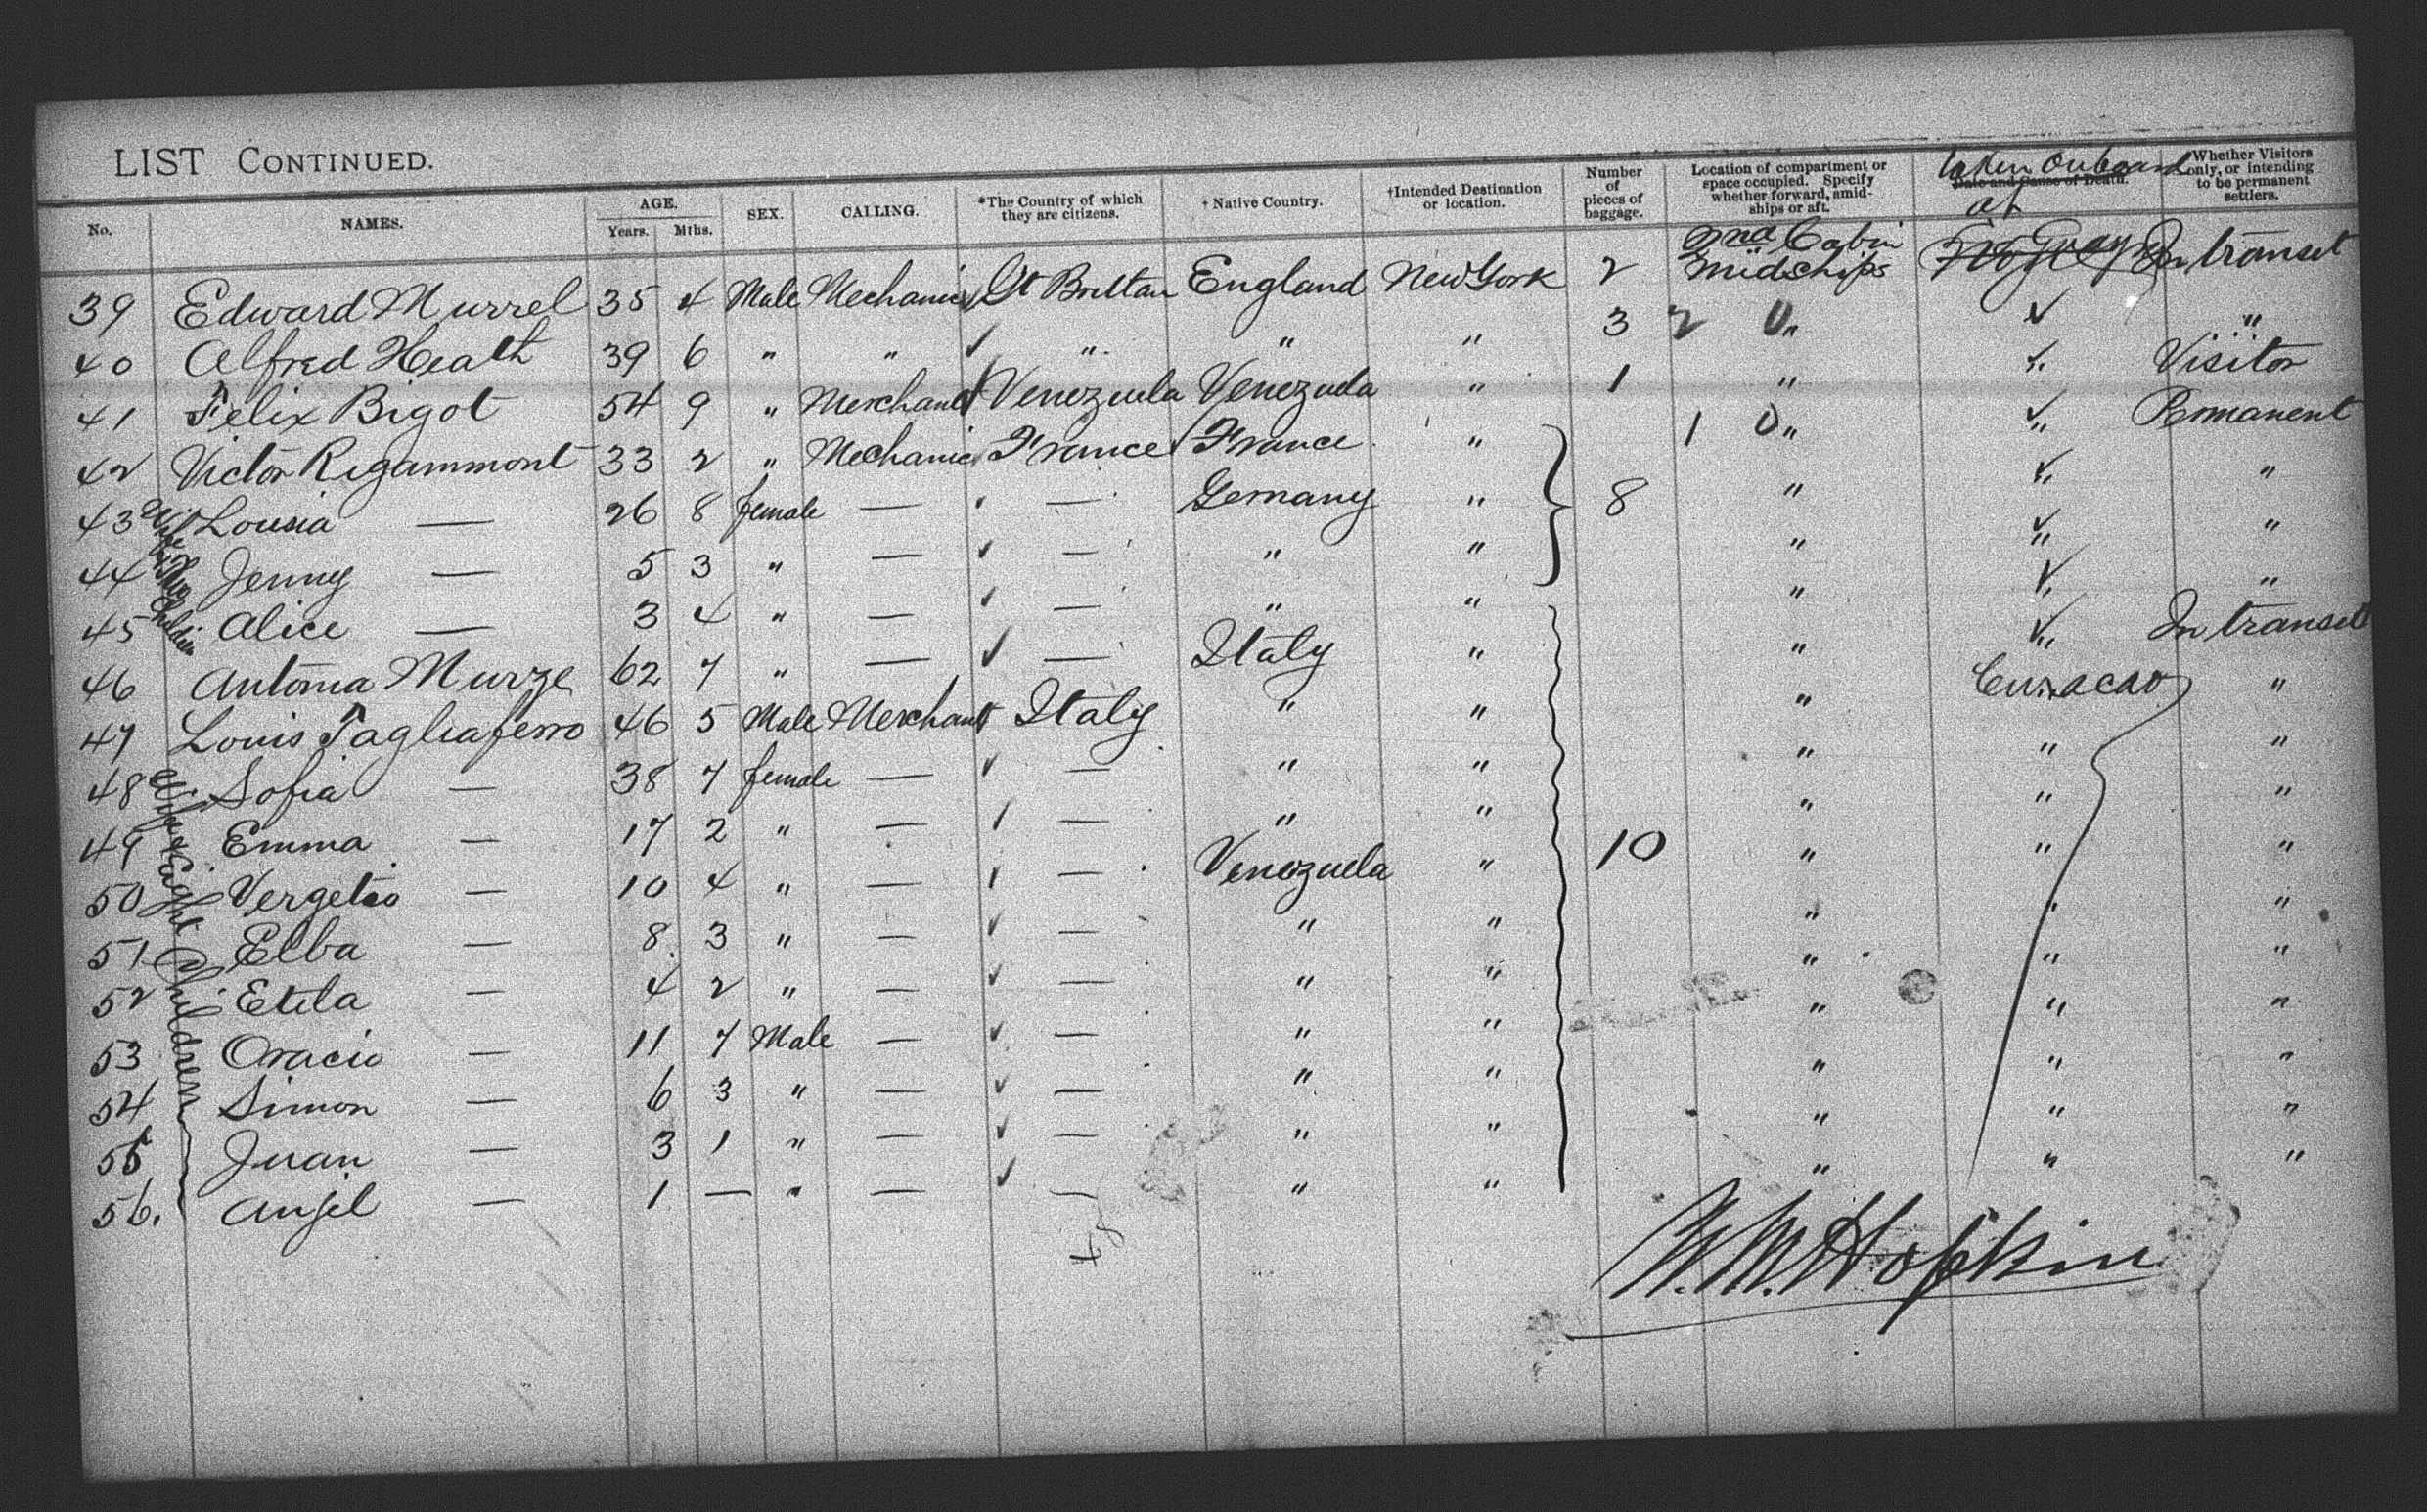 LIST CONTINUED.
No. NAMES. AGE. Years. Mths. SEX. CALLING. *The Country of which they are citizens. † Native Country. †Intended Destination or location. Number of pieces of baggage. Location of compartment or space occupied. Specify whether forward, amidships or aft. Date and Cause of Death. taken onboard at Whether Visitors only, or intending to be permanent settlers.
39 Edward Murrel 35 4 Male Mechanic ✓ Gt Brittan England New York 2 2nd Cabin midships In transit
40 Alfred Heath 39 6 " " ✓ " " " 3 2 0 " ✓ "
41 Felix Bigot 54 9 " Merchant Venezuela Venezuela " 1 " ✓ " Visitor
42 Victor Rigammont 33 2 " Mechanic France France " 1 0 " ✓ " Permanent
43 Lousia — 26 8 female — — Gemany " 8 " ✓ " "
44 Jenny — 5 3 " — ✓ — " " " ✓ " "
45 Alice — 3 4 " — ✓ — " " " ✓ "
Wife & two Children
46 Antonia Murze 62 7 " — ✓ — Italy " " ✓ " In transit
47 Louis Tagliaferro 46 5 Male Merchant Italy " " " Curacao "
48 Sofia — 38 7 female — ✓ — " " " " "
49 Emma — 17 2 " — ✓ — " " 10 " " "
50 Vergetio — 10 4 " — ✓ — Venezuela " " " "
51 Elba — 8 3 " — ✓ — " " " " "
52 Etila — 4 2 " — ✓ — " " " " "
53 Oracio — 11 7 Male — ✓ — " " " " "
54 Simon — 6 3 " — ✓ — " " " " "
55 Juan — 3 1 " — ✓ — " " " " "
56. Anjel — 1 — " — ✓ — " " " " "
Wife & Eaght Children
W. M. Hopkin